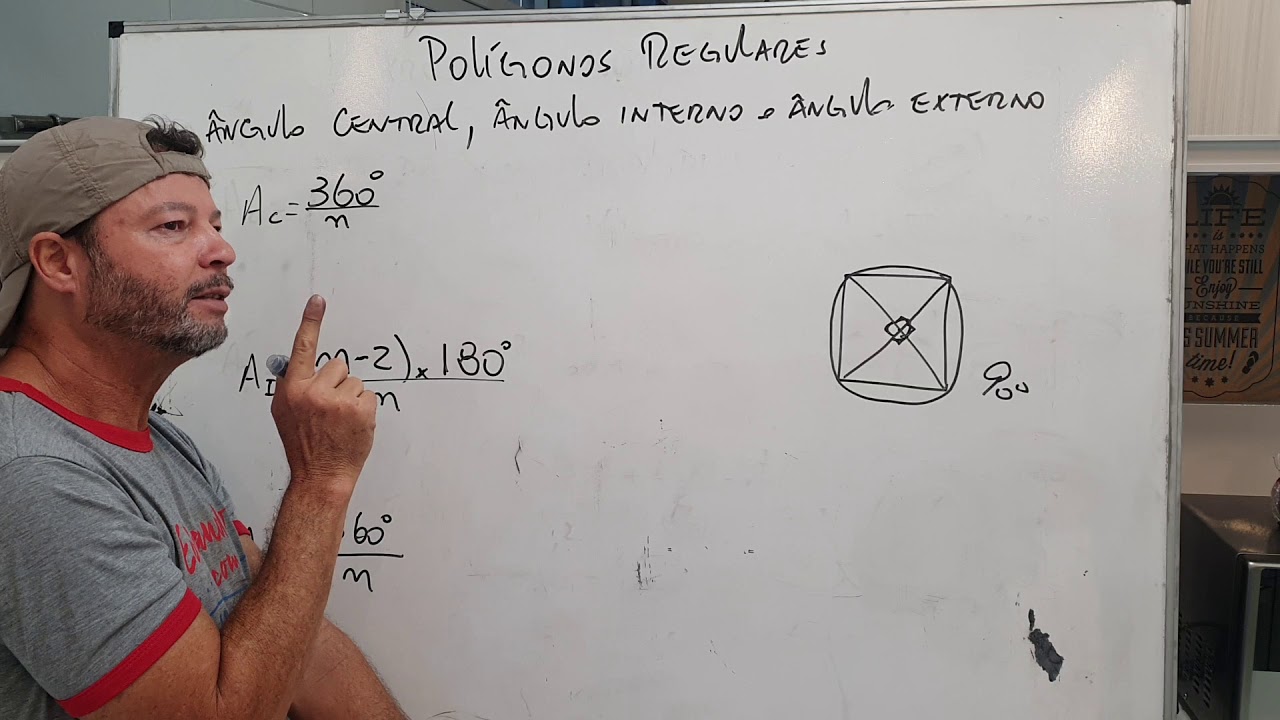 POLÍGONOS REGULARES
ÂNGULO CENTRAL, ÂNGULO INTERNO e ÂNGULO EXTERNO
Ac = 360° / n
A (n-2) x 180° / n
60° / n
90°
LIFE
is
WHAT HAPPENS
WHILE YOU'RE STILL
Enjoy
SUNSHINE
BECAUSE
IS SUMMER
time!